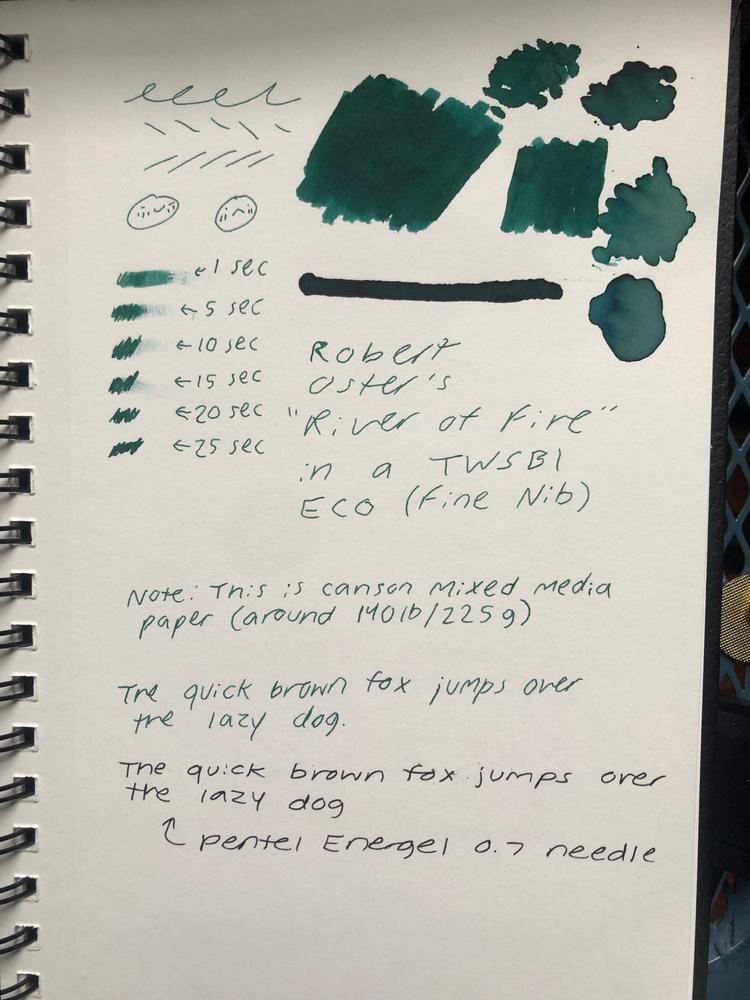 ←1 sec
←5 sec
←10 sec
←15 sec
←20 sec
←25 sec
Robert
Oster's
"River of Fire"
in a TWSBI
ECO (Fine Nib)
Note: This is canson mixed media
paper (around 140lb/225g)
The quick brown fox jumps over
the lazy dog.
The quick brown fox jumps over
the lazy dog
pentel Energel 0.7 needle